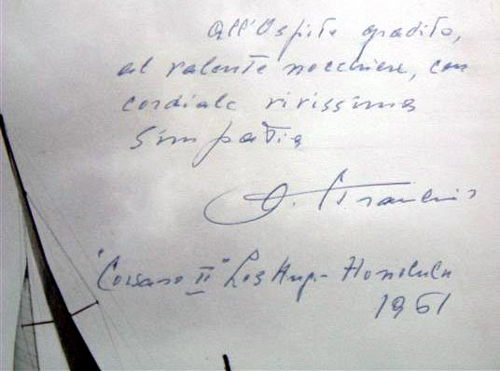 all'Ospite gradito,
al valente nocchiere, con
cordiale vivissima
simpatia
"Corsaro II" Los Ang- Honolulu
1961